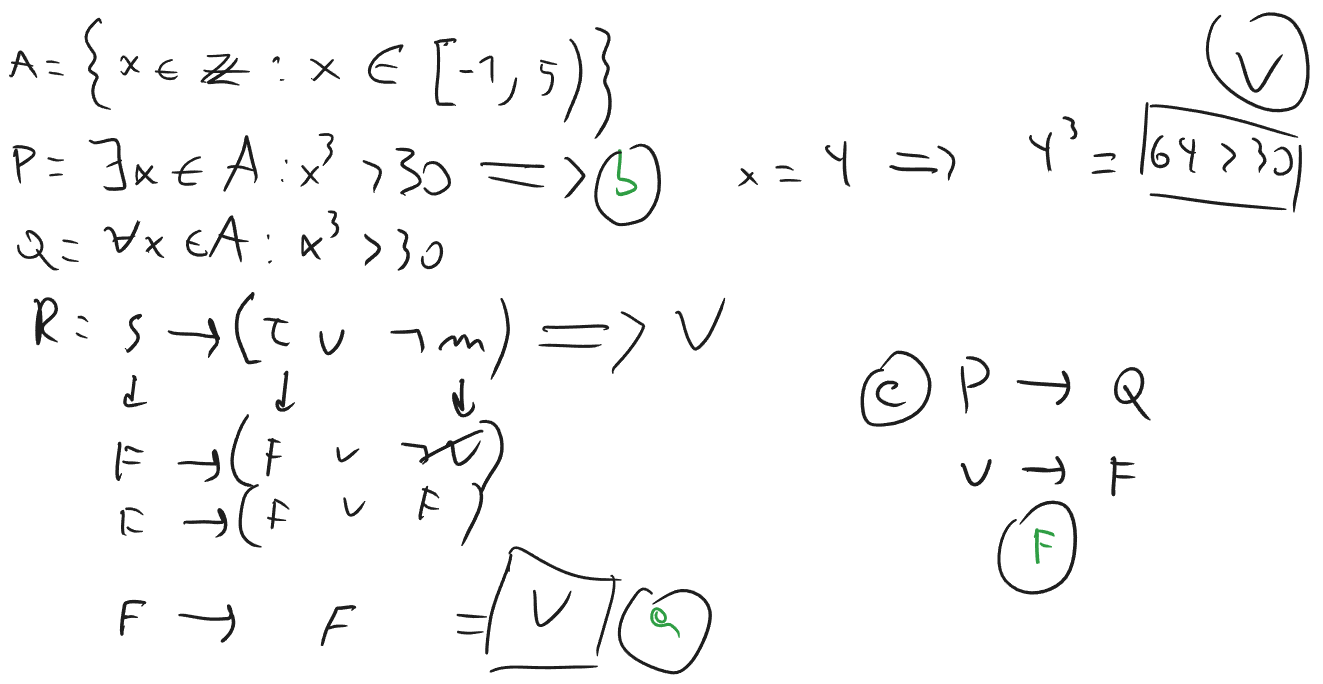 A = { x ∈ ℤ : x ∈ [-1, 5) }
V
P = ∃x ∈ A : x³ > 30 => b
x = 4 => 4³ = 64 > 30
Q = ∀x ∈ A : x³ > 30
R = s → (t ∨ ¬m) => V
↓ ↓ ↓
F → (F ∨ ¬V)
F → (F ∨ F)
F → F = V a
c P → Q
V → F
F